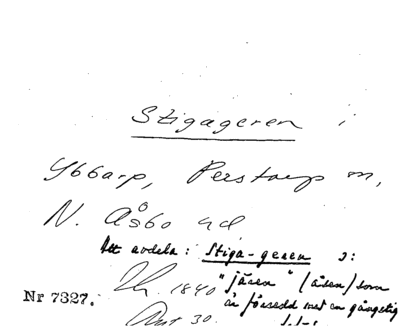 Stigageren i
Ybbarp, Perstorp sn,
N. Åsbo hd
Att avdela: Stiga-geren ɔ:
"jären" (åsen) som
Uh. 1840
är försedd med en gångstig
Nr 7327.
30.